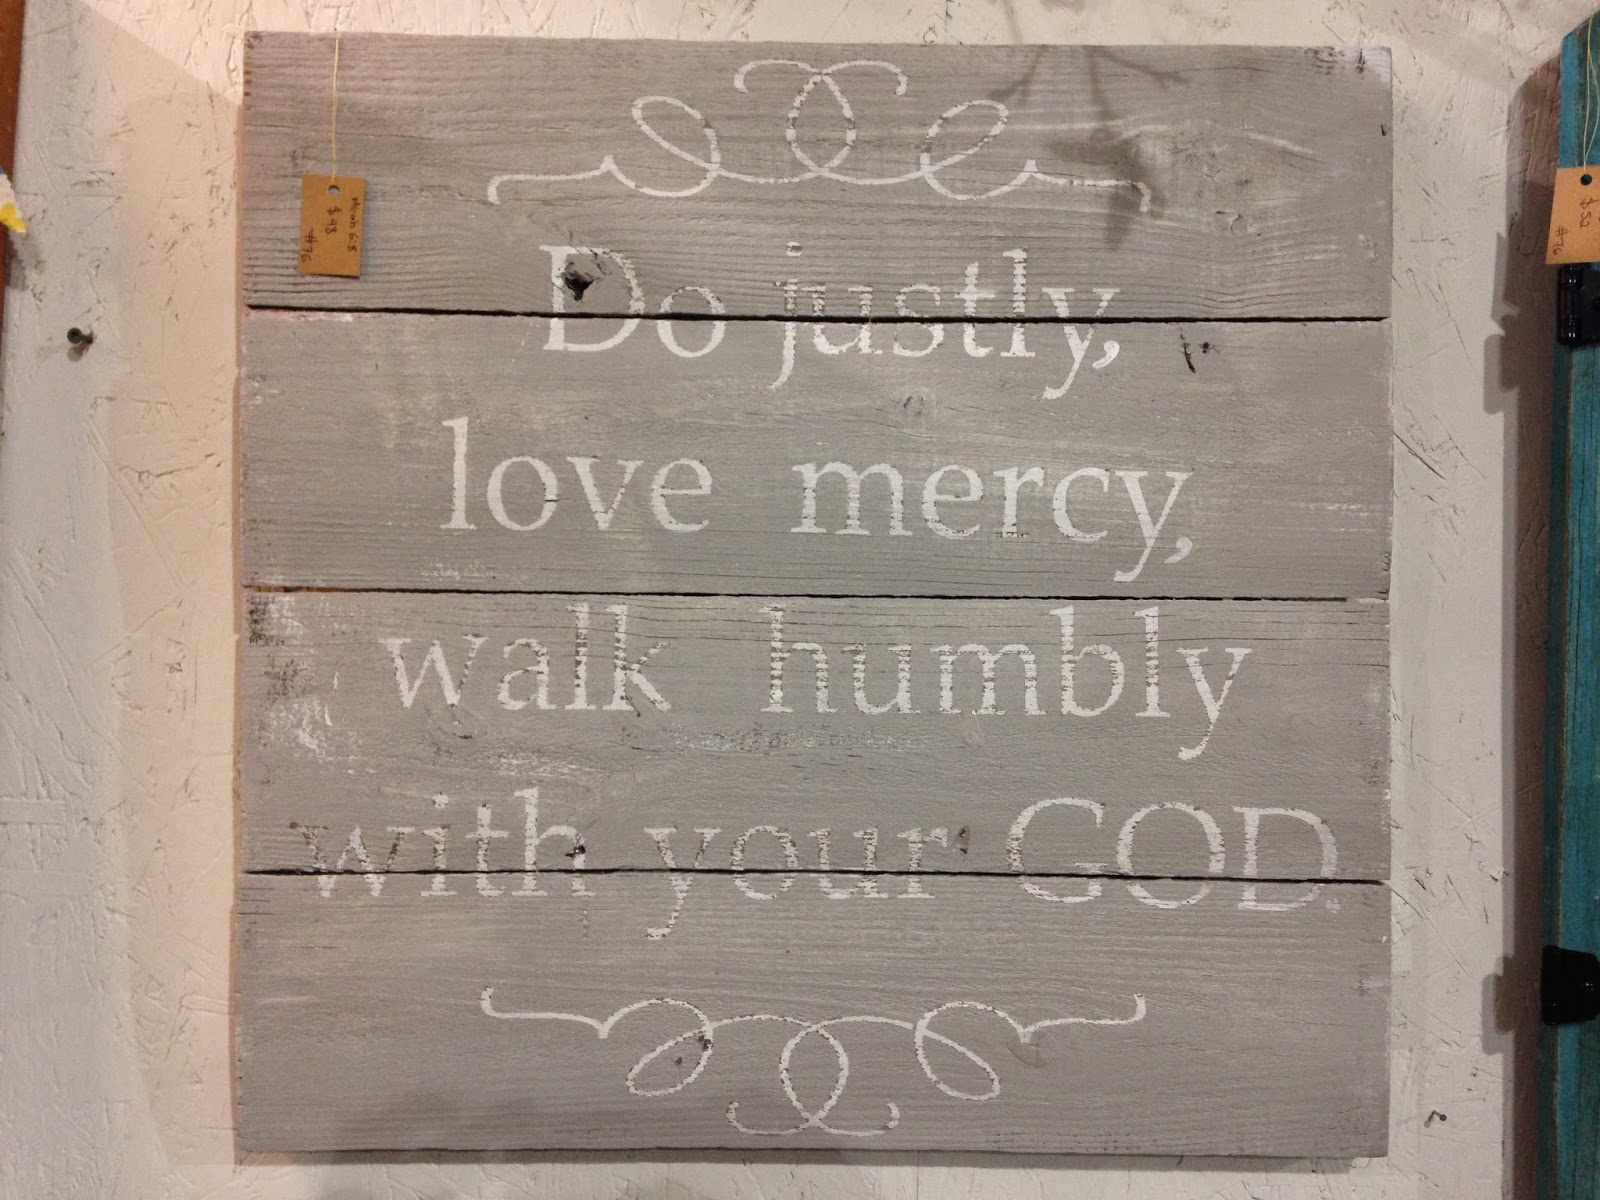 Do justly,
love mercy,
walk humbly
with your GOD.
Micah 6:8
$98
#76
$52
#76